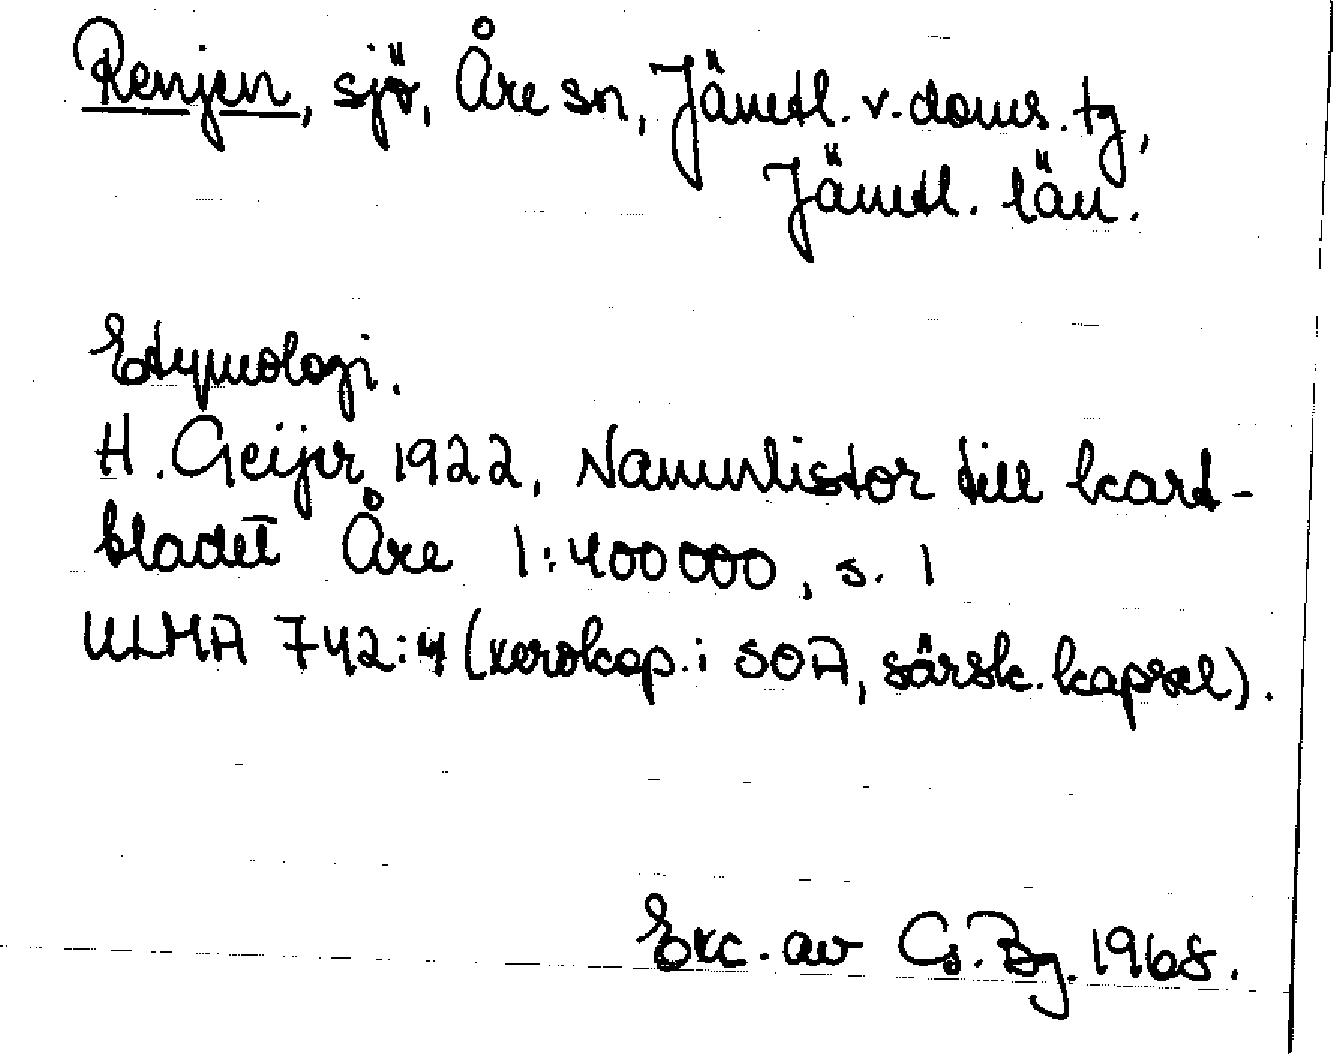 Renjen, sjö, Åre sn, Jämtl. v. doms. tg,
Jämtl. län.
Etymologi.
H. Geijer 1922, Namnlistor till kart-
bladet Åre 1:400000, s. 1
ULMA 742:4 (xerokop. i SOA, särsk. kapsel).
Exc. av G. Bg. 1968.